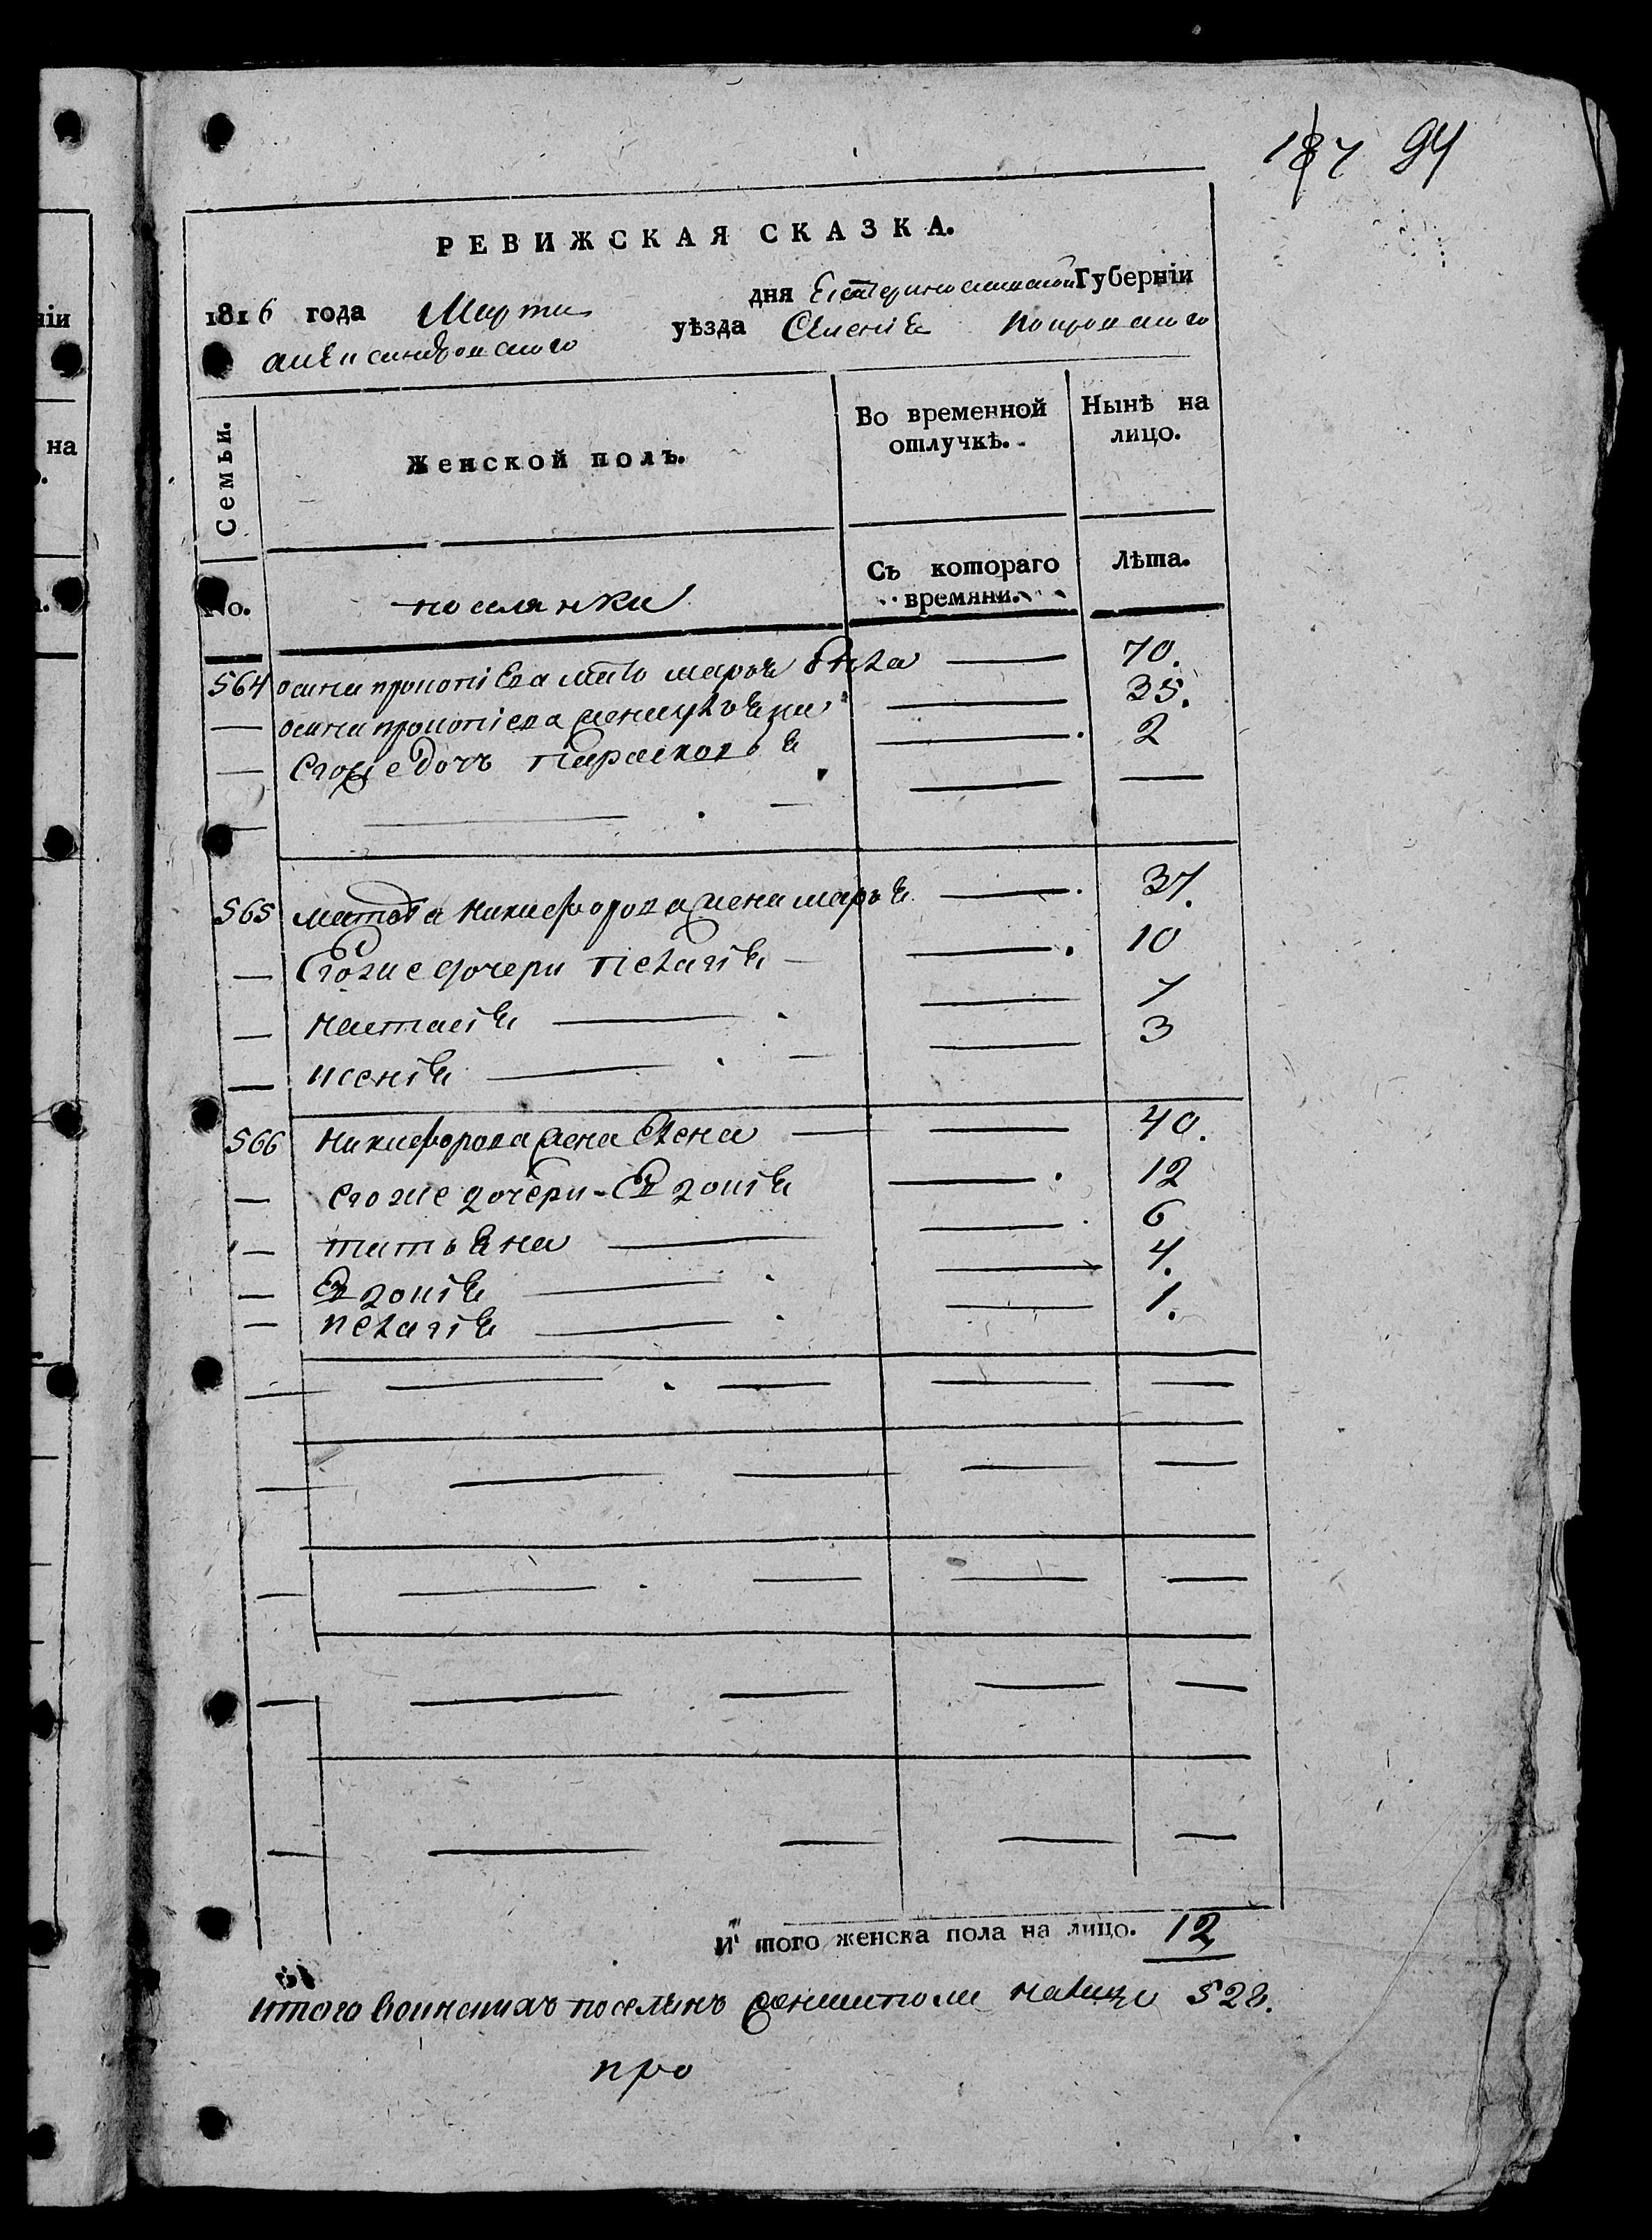 187 94
РЕВИЖСКАЯ СКАЗКА.
1816 года Марта дня Екатеринославской Губерніи
александровского уѣзда Селенія Покровского
Семьи. Женской полъ. Во временной отлучкѣ. Нынѣ на лицо.
No. поселянки Съ котораго времяни. Лѣта.
564 осипа прокопіева мать марья — 70.
— осипа прокопіева жена — 35.
— Егоже дочь Парасковья — 2
— — — — —
565 матвѣя никифорова жена марья — 37.
— Егоже дочери Пелагія — — 10
— настасія — — 7
— ксенія — — — 3
566 никифорова жена Елена — — 40.
— егоже дочери - Евдокія — 12
— татьяна — — 6
— Евдокія — — 4.
— пелагія — — 1.
— — — — —
— — — — —
— — — — —
— — — — —
— — — — —
И того женска пола на лицо. 12
итого воинскихъ поселянъ женска пола налицо 528.
про
ніи
на